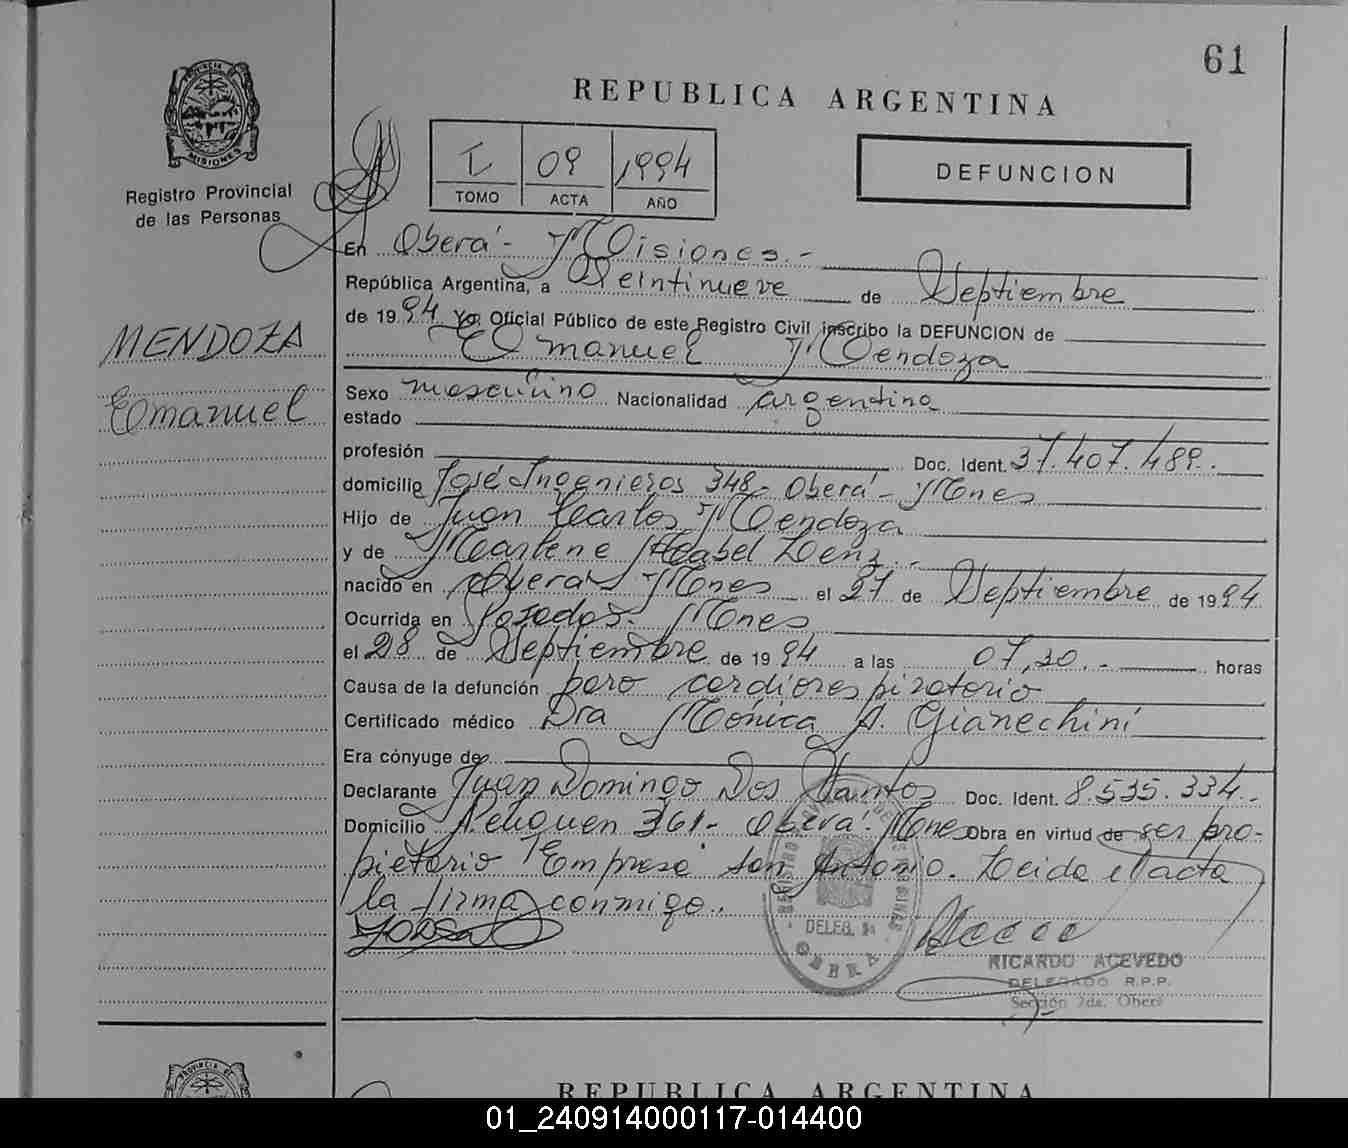 61
REPUBLICA ARGENTINA
PROVINCIA DE
MISIONES
Registro Provincial
de las Personas
I 09 1994
TOMO ACTA AÑO
DEFUNCION
En Oberá - Misiones.-
República Argentina, a Veintinueve de Septiembre
de 1994 Yo, Oficial Público de este Registro Civil inscribo la DEFUNCION de
Emanuel Mendoza
MENDOZA
Emanuel
Sexo masculino Nacionalidad argentina
estado
profesión Doc. Ident. 37.407.489.
domicilio José Ingenieros 348 - Oberá - Mnes
Hijo de Juan Carlos Mendoza
y de Marlene Isabel Lenz.-
nacido en Oberá Mnes el 27 de Septiembre de 1994
Ocurrida en Posadas - Mnes
el 28 de Septiembre de 1994 a las 07,30.- horas
Causa de la defunción paro cardiorespiratorio
Certificado médico Dra Mónica A. Gianechini
Era cónyuge de
Declarante Juan Domingo Dos Santos Doc. Ident. 8.535.334.-
Domicilio Nehquen 361 - Oberá - Mnes Obra en virtud de ser pro-
pietario "Empresa" San Antonio. Leida el acta
la firma conmigo.
DELEG. 2a
OBERA
RICARDO ACEVEDO
DELEGADO R.P.P.
Sección 2da. Oberá
PROVINCIA DE
REPUBLICA ARGENTINA
01_240914000117-014400